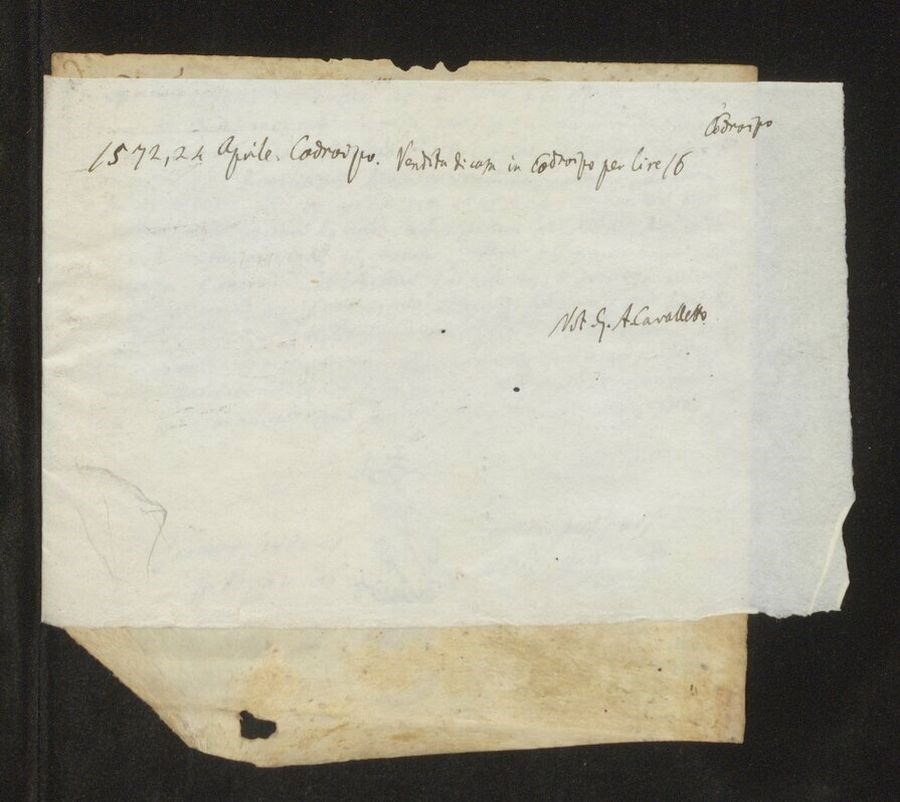 Codroipo
1572, 24 Aprile. Codroipo. Vendita di casa in Codroipo per lire 16
Not. G. A. Cavalletto